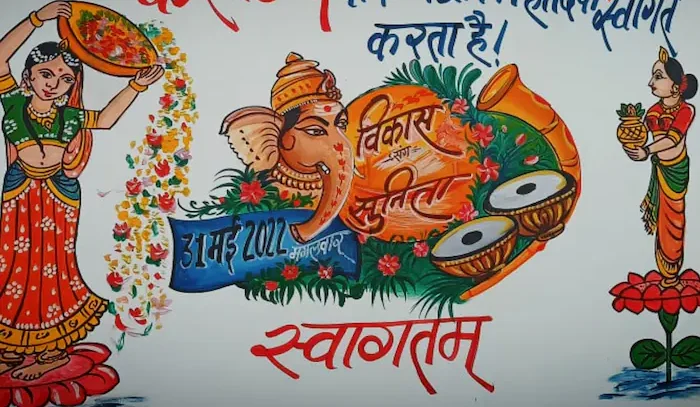 स्वागत
करता है!
विकास
संग
सुनिता
31 मई 2022
मंगलवार
स्वागतम्